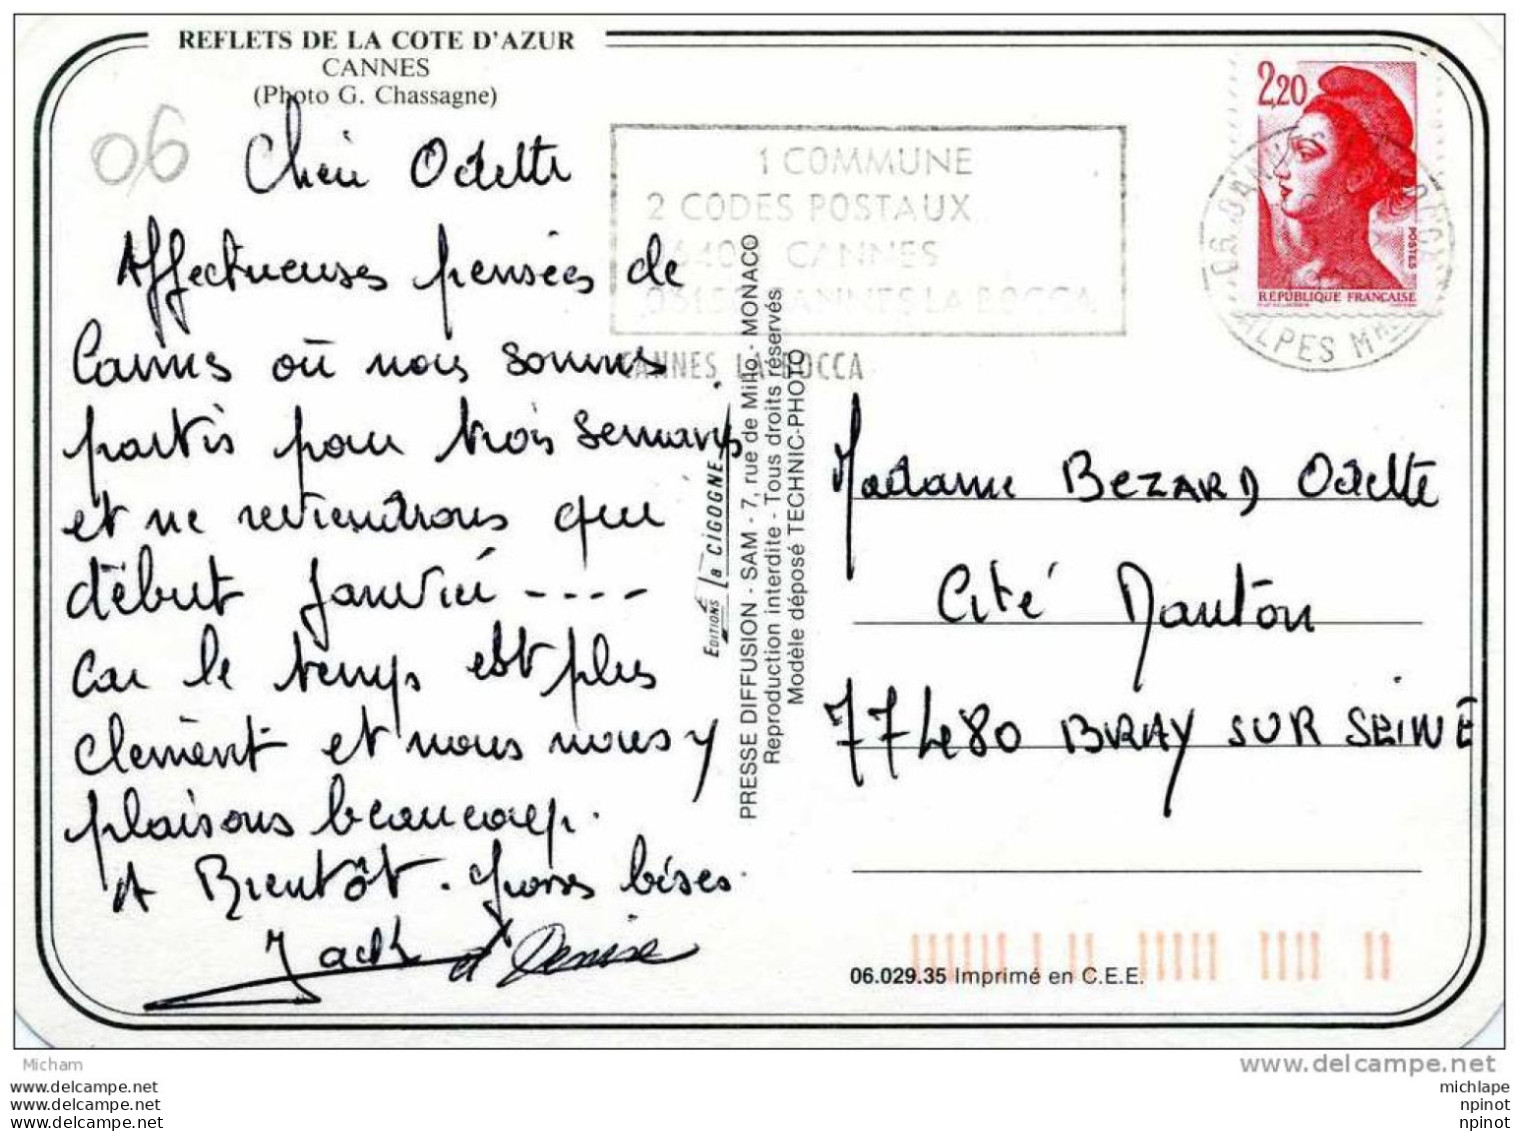 REFLETS DE LA COTE D'AZUR
CANNES
(Photo G. Chassagne)
06
Chère Odette
Affectueuses pensées de
Cannes où nous sommes
partis pour trois semaines
et ne reviendrons que
début Janvier ----
car le temps est plus
clément et nous nous y
plaisons beaucoup.
A Bientôt. grosses bises.
Jack et Denise
1 COMMUNE
2 CODES POSTAUX
CANNES
CANNES LA BOCCA
CANNES LA BOCCA
EDITIONS la CIGOGNE
PRESSE DIFFUSION - SAM - 7, rue de Millo - MONACO
Reproduction interdite - Tous droits réservés
Modèle déposé TECHNIC-PHOTO
2,20
POSTES
REPUBLIQUE FRANÇAISE
ALPES Mmes
Madame BEZARD Odette
Cité
77480 BRAY SUR SEINE
06.029.35 Imprimé en C.E.E.
Micham
www.delcampe.net
www.delcampe.net
www.delcampe.net
www.delcampe.net
michlape
npinot
npinot